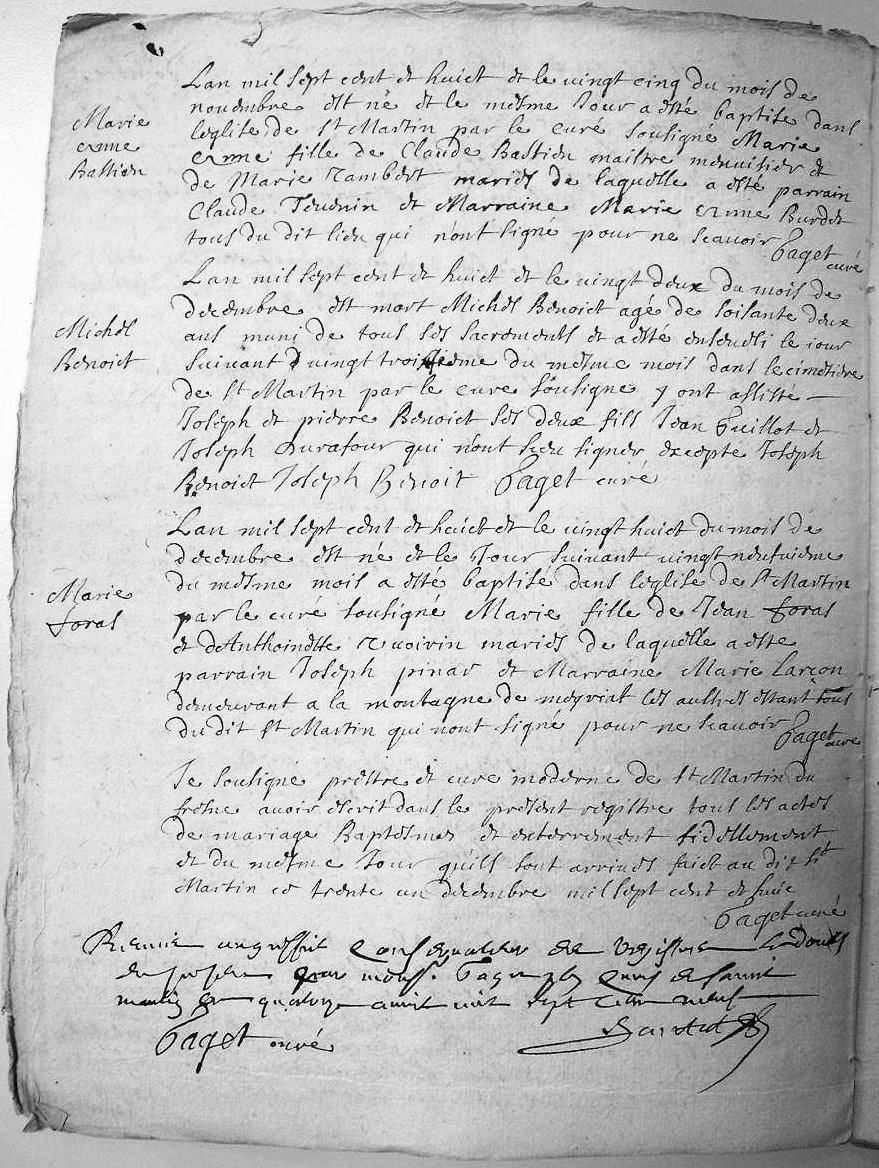 Lan mil sept cent et huict et le vingt cinq du mois de
novembre est né et le mesme Jour a esté baptise dans
Marie
l'eglise de St Martin par le curé sousigné Marie
erme
erme fille de Claude Bastien maistre menuisier et
Bastien
de Marie Tambert mariés de laquelle a esté parrain
Claude Tevenin et Marraine Marie erme Burdet
tous du dit lieu qui n'ont signé pour ne scavoir Paget curé
Lan mil sept cent et huict et le vingt deux du mois de
decembre est mort Michel Benoict agé de soisante deux
Michel
ans muni de tous ses sacrements et a esté enseveli le iour
Benoict
suivant vingt troisieme du mesme mois dans le cimetiere
de St Martin par le cure sousigne y ont assisté
Joseph et pierre Benoict ses deux fils Jean Guillot et
Joseph Durafour qui n'ont sceu signer excepte Joseph
Benoict Joseph Benoit Paget curé
Lan mil sept cent et huict et le vingt huict du mois de
decembre est né et le Jour suivant vingt neufvieme
du mesme mois a esté baptisé dans l'eglise de St Martin
Marie
par le curé sousigné Marie fille de Jean foras
foras
et d'Anthoinette Vuoirin mariés de laquelle a esté
parrain Joseph pinar et Marraine Marie Larcon
demeurant a la montagne de meyriat les aultres estant tous
du dit St Martin qui nont signé pour ne scavoir Paget cure
Je sousigné prestre et cure moderne de St Martin du
fresne avoir escrit dans le present registre tous les actes
de mariage Baptesmes et enterrement fidellement
et du mesme Jour qu'ils sont arrivés faict au dit St
Martin ce trente un decembre mil sept cent et huic
Paget curé
par mons. Paget curé de Saint
mil sept cent neuf
Paget curé